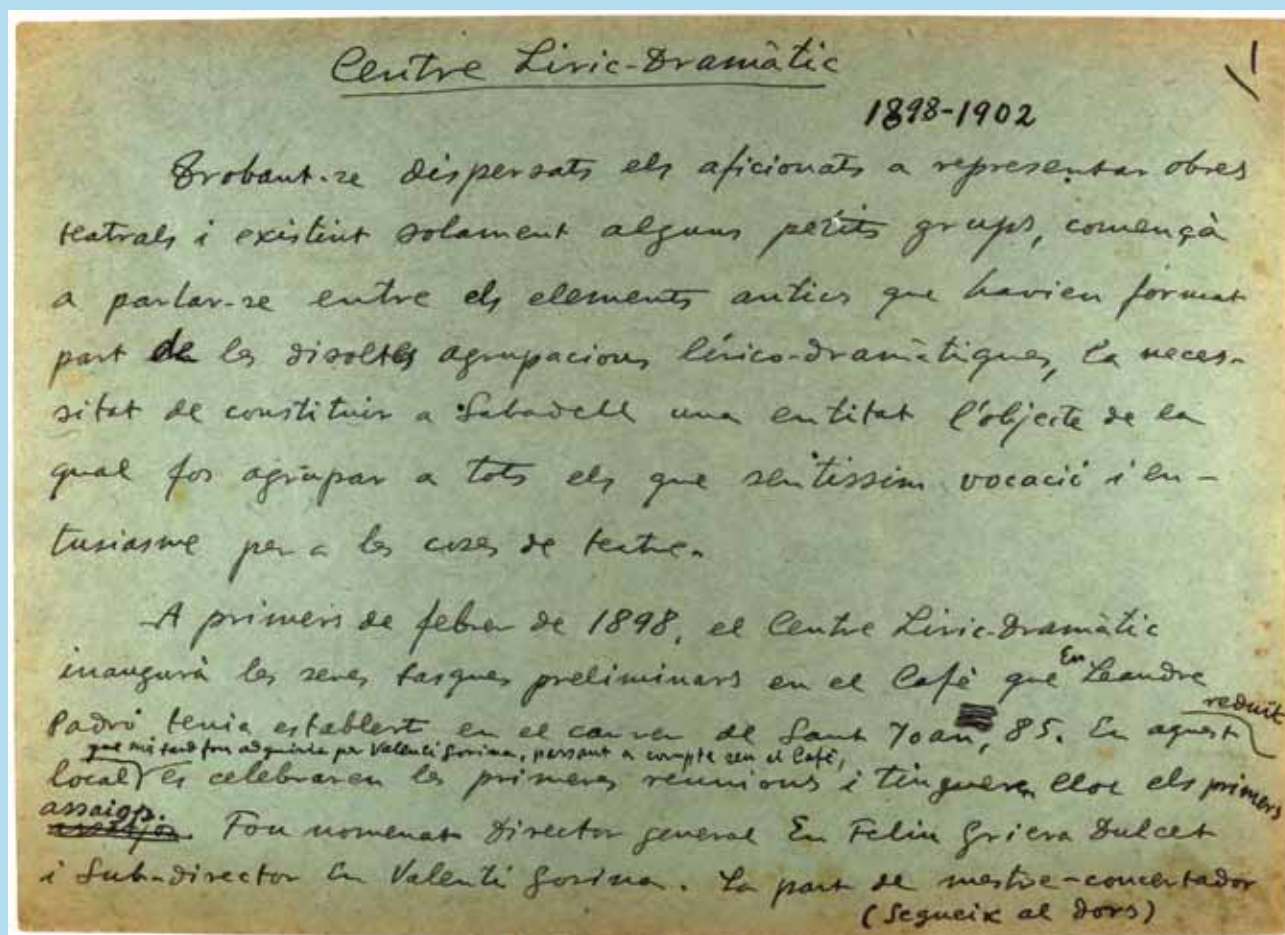 Centre Líric-Dramàtic
1
1898-1902
Trobant-se dispersats els aficionats a representar obres
teatrals i existint solament alguns petits grups, començà
a parlar-se entre els elements antics que havien format
part de les disoltes agrupacions lírico-dramàtiques, la neces-
sitat de constituir a Sabadell una entitat l'objecte de la
qual fos agrupar a tots els que sentissim vocació i en-
tusiasme per a les coses de teatre.
A primers de febrer de 1898, el Centre Líric-Dramàtic
inaugurà les seves tasques preliminars en el Cafè que En Leandre
Padró tenia establert en el carrer de Sant Joan, 85. En aquest reduït
local que més tard fou adquirit per Valentí Gorina, passant a compte seu el Cafè,
es celebraren les primeres reunions i tingueren lloc els primers
assaigs. Fou nomenat Director general En Feliu Griera Dulcet
i Sub-director En Valentí Gorina. La part de mestre-concertador
(Segueix al dors)